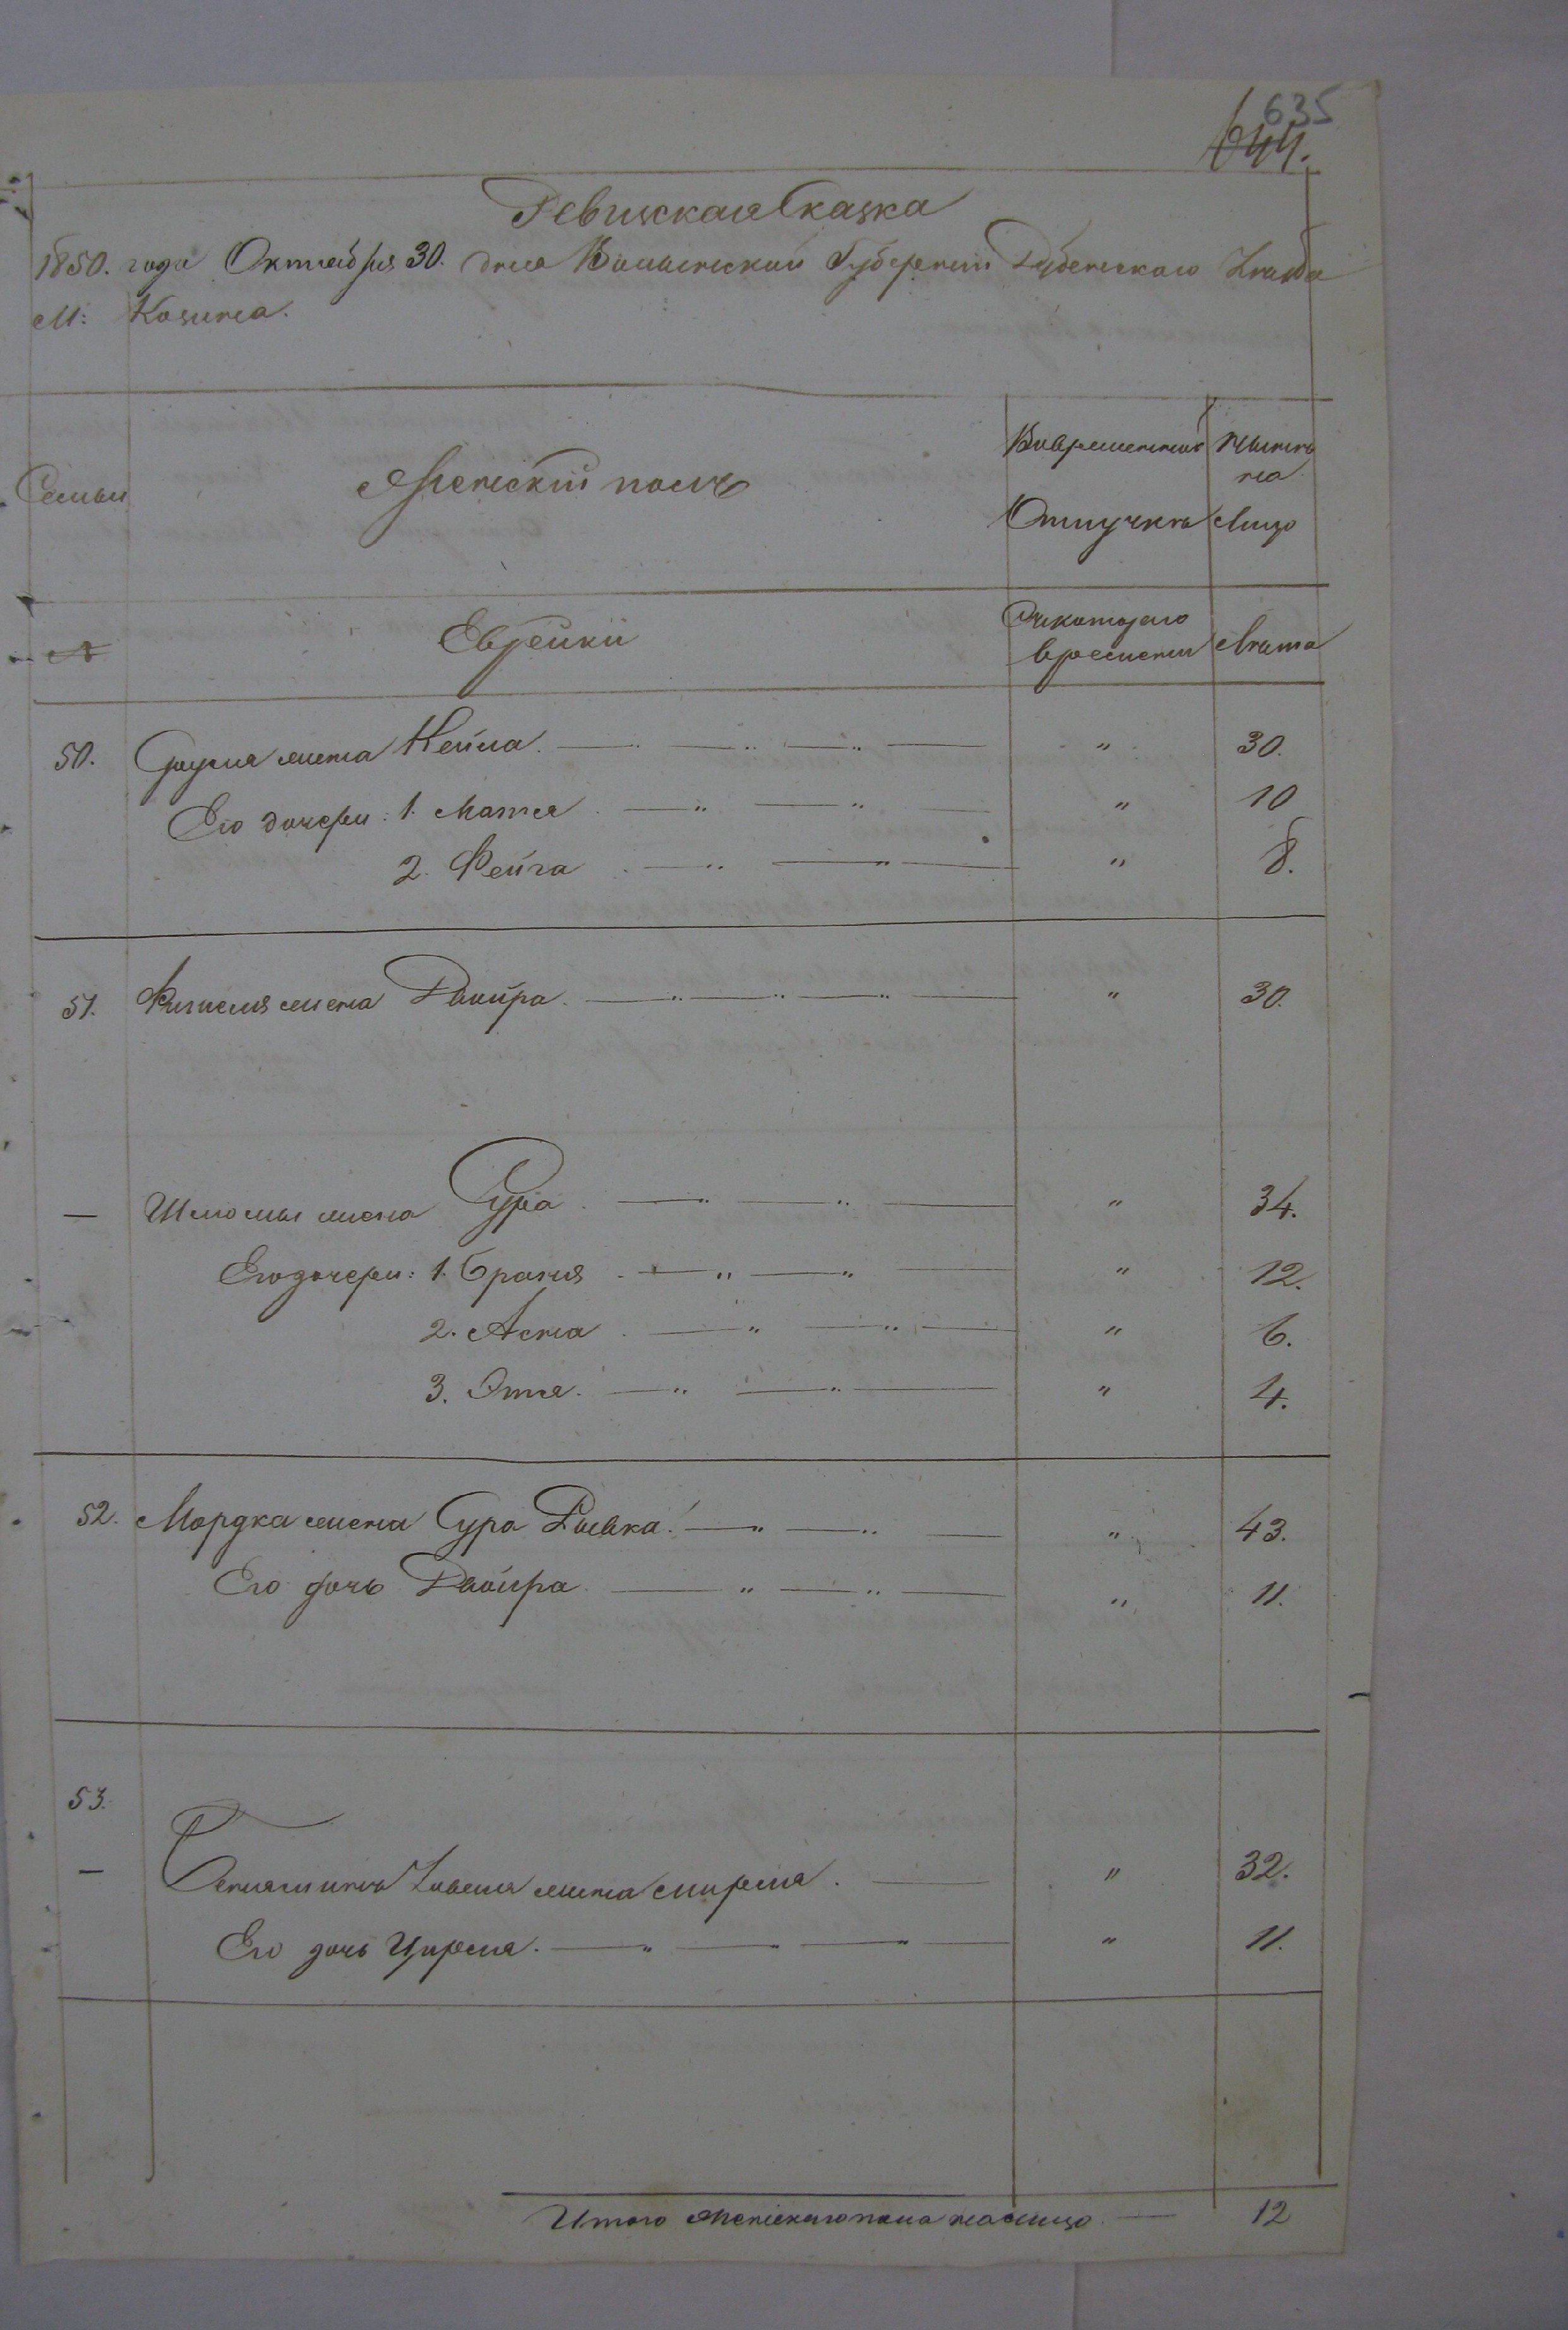 635
644.
Ревизская Сказка
1850. года Октября 30. дня Волынской Губернии Дубенского Уѣзда
М: Козина.
Семьи
Женский полъ
Вовременной
Отлучкѣ
Нынѣ
на
Лицо
№
Еврейки
Съкоторого
времени
Лѣта
50. жена Нейла. " 30.
Его дочери: 1. Матля " 10
2. Фейга " 8.
51. Фишеля жена Двойра. " 30.
— Шломы жена Сура. " 34.
Его дочери: 1. Браня " 12.
2. Асна " 6.
3. Этля. " 4.
52. Мордка жена Сура Ривка. " 43.
Его дочь Двойра " 11.
53.
— Беньяминъ жена Мирля. " 32.
Его дочь Цирля. " 11.
Итого Женского пола налицо — 12